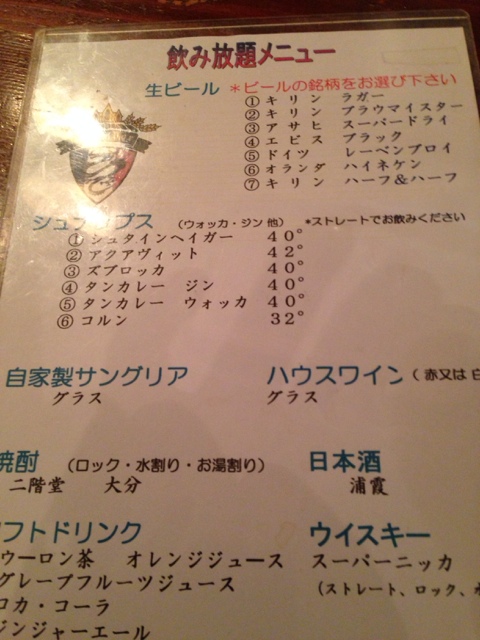 飲み放題メニュー
生ビール ＊ビールの銘柄をお選び下さい
① キリン ラガー
② キリン ブラウマイスター
③ アサヒ スーパードライ
④ エビス ブラック
⑤ ドイツ レーベンブロイ
⑥ オランダ ハイネケン
⑦ キリン ハーフ＆ハーフ
シュナップス （ウォッカ・ジン他） ＊ストレートでお飲みください
① シュタインヘイガー ４０°
② アクアヴィット ４２°
③ ズブロッカ ４０°
④ タンカレー ジン ４０°
⑤ タンカレー ウォッカ ４０°
⑥ コルン ３２°
自家製サングリア ハウスワイン（赤又は白
グラス グラス
焼酎 （ロック・水割り・お湯割り） 日本酒
二階堂 大分 浦霞
フトドリンク ウイスキー
ウーロン茶 オレンジジュース スーパーニッカ
グレープフルーツジュース （ストレート、ロック、
コカ・コーラ
ジンジャーエール